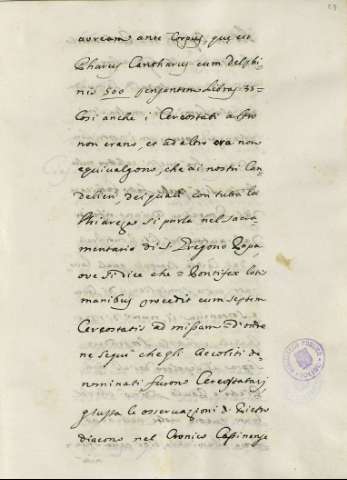 auream ante Corpus, qui est
Pharus Cantharus cum delphi-
nis 500 pensantem Libras 35=
Così anche i Cereostati altro
non erano, et ad altro ora non
equivalgono, che ai nostri Can-
delieri, dei quali con tutta la
Chiarezza si parla nel Sacra-
mentario di S. Gregorio Papa
ove si dice che = Pontifex lotis
manibus procedit cum septem
Cereostatis ad missam = d'onde
ne seguì che gli Accoliti de-
nominati furono Cereostatarj
giusta le osservazioni di Pietro
diacono nel Cronico Cassinense